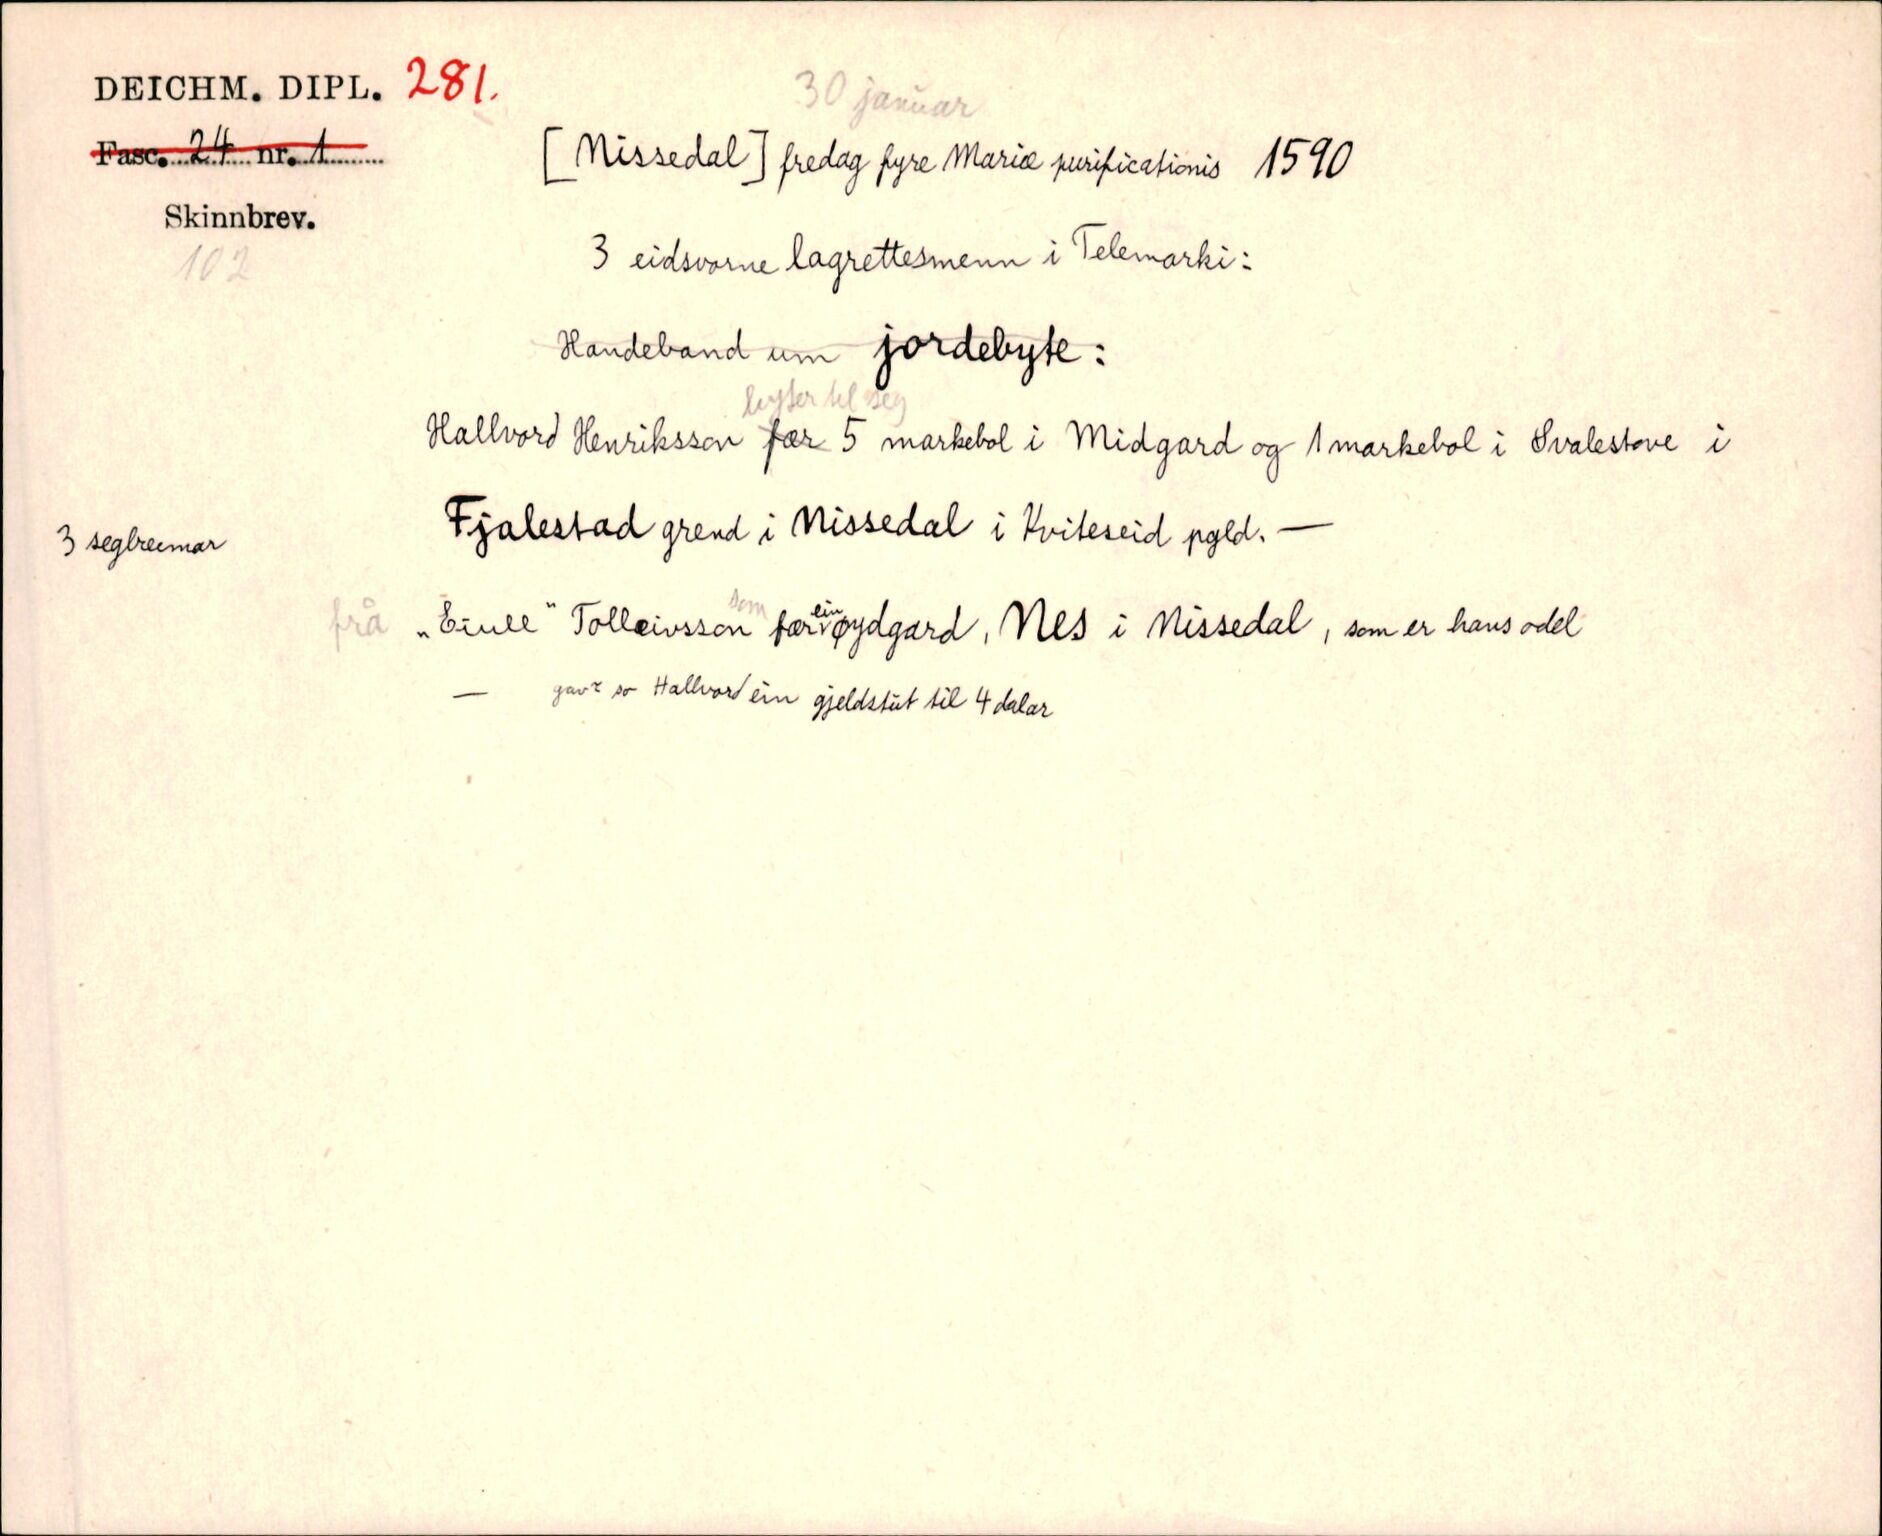 DEICHM. DIPL. 281.
30 januar
Fasc. 24 nr. 1
[Nissedal] fredag fyre Mariæ purificationis 1590
Skinnbrev.
102
3 eidsvorne lagrettesmenn i Telemarki:
Handeband um jordebyte:
byter til seg
Hallvord Henriksson fær 5 markebol i Midgard og 1 markebol i Svalestove i
Fjalestad grend i Nissedal i Kviteseid pgld. —
3 seglreimar
frå „Eiull" Tolleivsson som fær ein øydgard, Nes i Nissedal, som er hans odel
— gav so Hallvord ein gjeldstut til 4 dalar